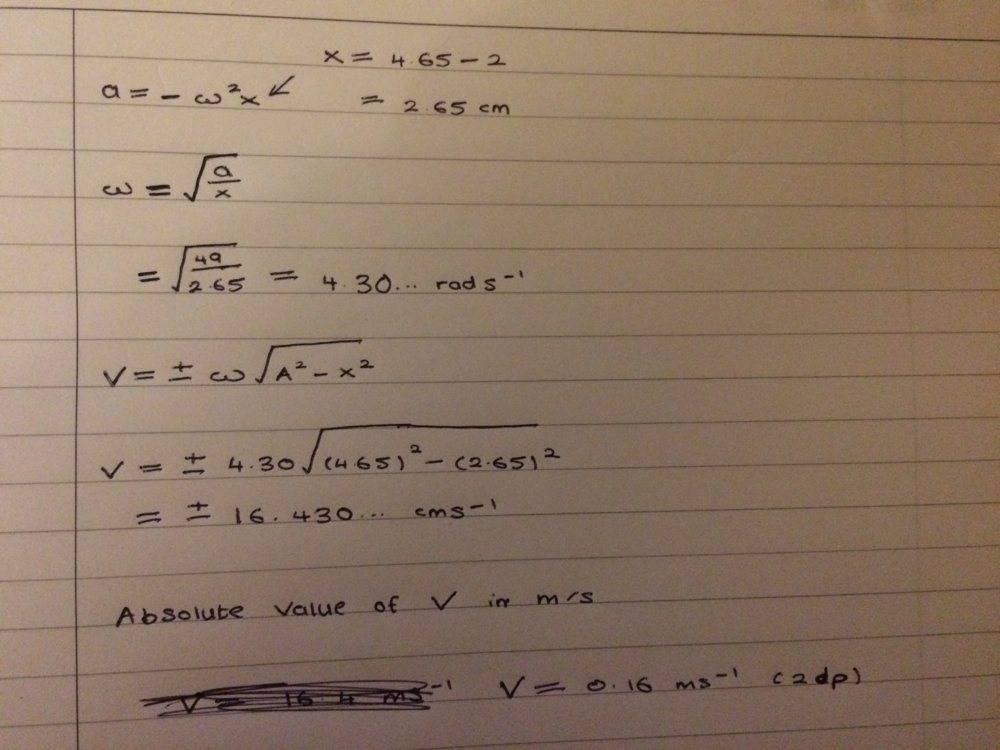 x = 4.65 - 2
a = - ω²x ↙
= 2.65 cm
ω = √(a/x)
= √(49/2.65) = 4.30... rad s⁻¹
V = ± ω √(A² - x²)
V = ± 4.30 √((4.65)² - (2.65)²)
= ± 16.430... cms⁻¹
Absolute Value of V in m/s
V = 16.4 ms⁻¹ V = 0.16 ms⁻¹ (2dp)